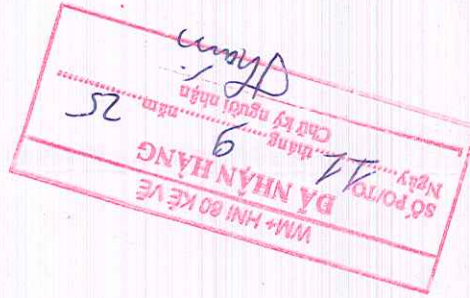 WM+ HNI 60 KẺ VẼ
ĐÃ NHẬN HÀNG
SỐ PO/TO
Ngày 11 tháng 9 năm 25
Chữ ký người nhận